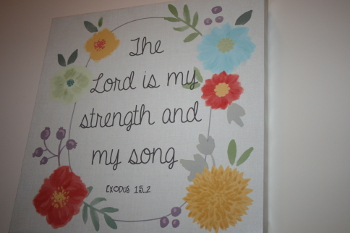 The
Lord is my
strength and
my song
EXODUS 15:2